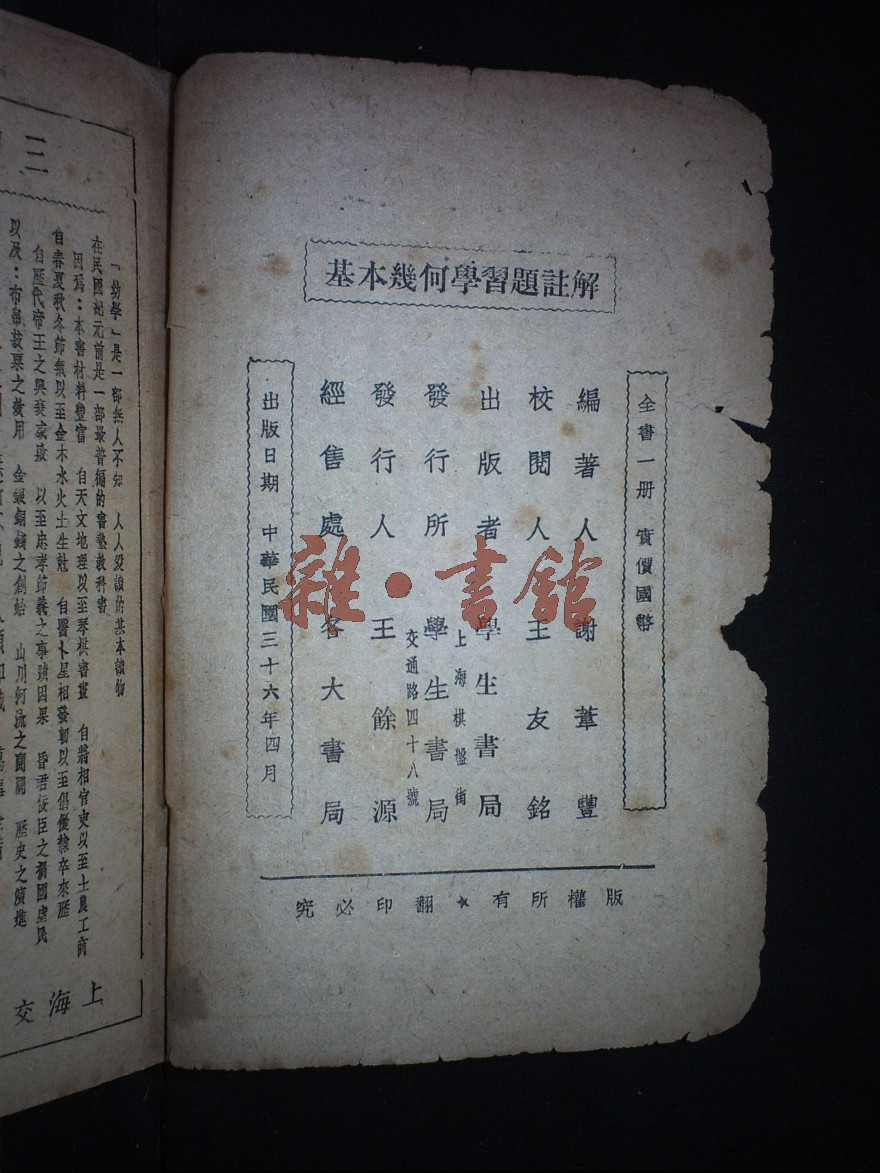 基本幾何學習題註解
全書一册 實價國幣
編著人 謝葦豐
校閱人 王友銘
出版者 學生書局
發行所 學生書局
上海棋盤街
交通路四十八號
發行人 王餘源
經售處 各大書局
出版日期 中華民國三十六年四月
版權所有★翻印必究
雜·書館
三
「幼學」是一部無人不知 人人必讀的基本讀物
在民國紀元前是一部最普徧的書塾教科書
因爲：本書材料豐富 自天文地理以至琴棋書畫 自將相官吏以至士農工商
自春夏秋冬節氣以至金木水火土生尅 自醫卜星相發軔以至倡優隸卒來歷
自歷代帝王之興衰或敗 以至忠孝節義之事蹟因果 昏君佞臣之禍國虐民
以及：布帛菽粟之效用 金銀銅錢之創始 山川河流之開闢 歷史之演進
上海交